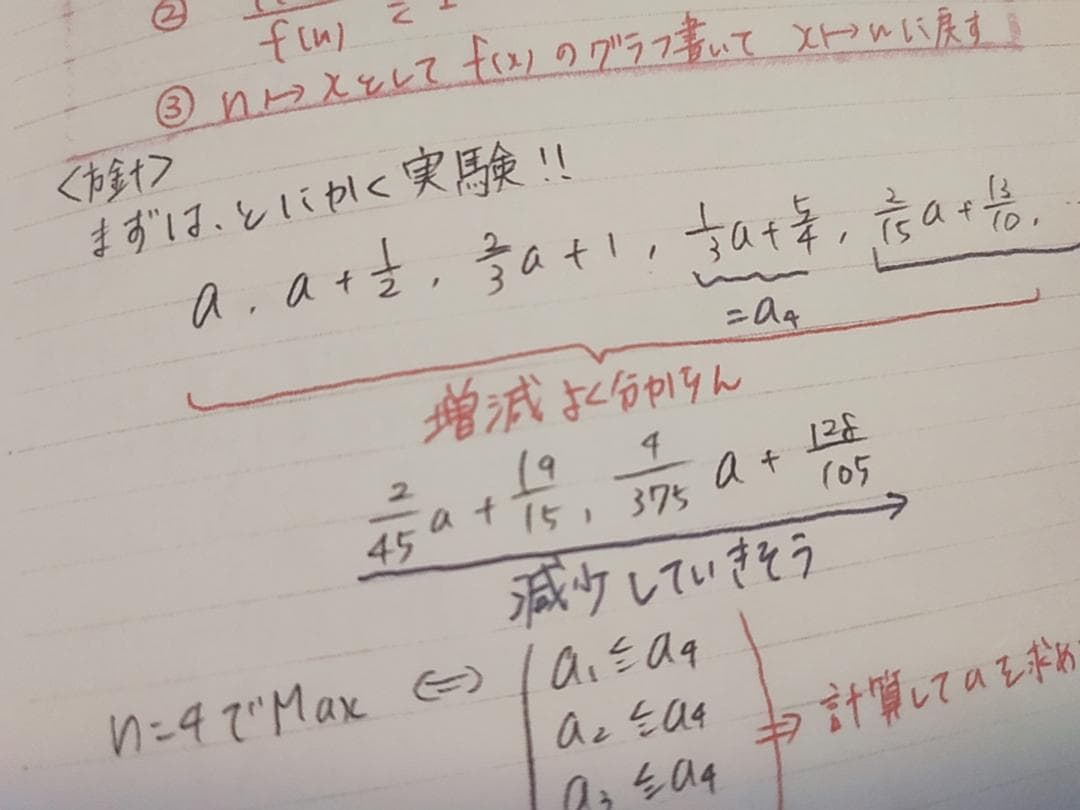 ② f(n)
③ n↦xとして f(x)のグラフ書いて x↦nに戻す
<方針>
まずは、とにかく実験!!
a, a+1/2, 2/3a+1, 1/3a+5/4, 2/15a+13/10,
=a₄
増減よく分からん
2/45a+19/15, 4/375a+128/105
減少していきそう
n=4でMax ⇔ a₁≦a₄
a₂≦a₄ ⇒ 計算してaを求め
a₃≦a₄